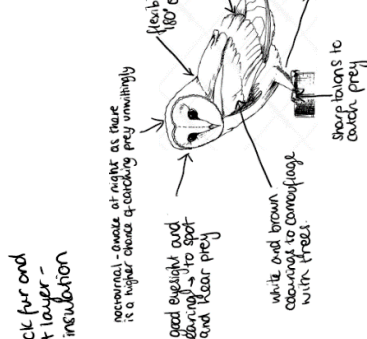 ck fur and
layer -
insulation
nocturnal - awake at night as there
is a higher chance of catching prey unwittingly
flexib
180°
good eyesight and
earing → to spot
and hear prey
white and brown
colourings to camouflage
with trees.
sharp talons to
catch prey